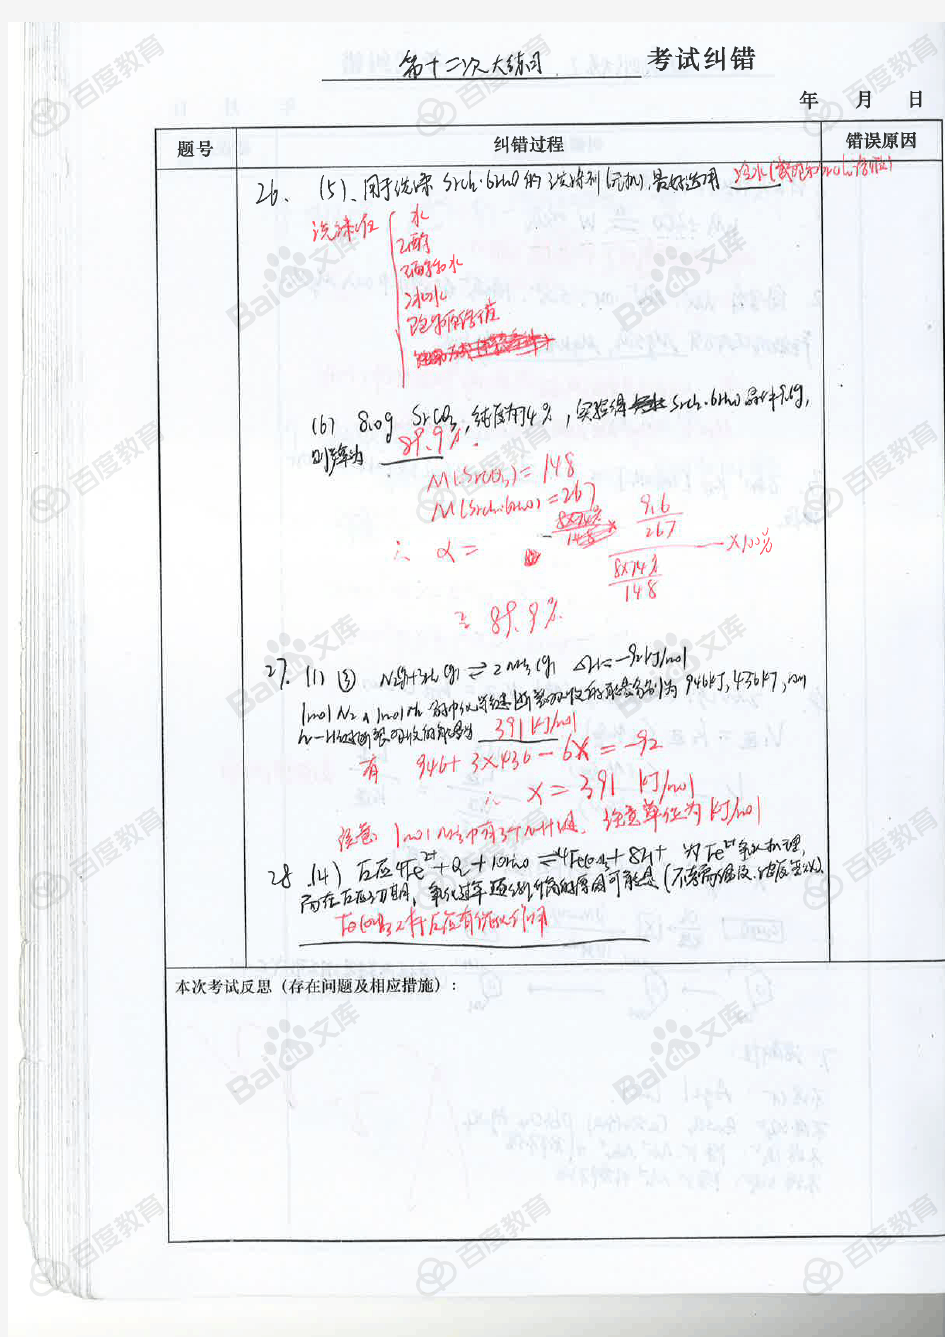 第十二次大练习 考试纠错
年 月 日
题号 纠错过程 错误原因
26. (5)、用于洗涤 SrCl₂·6H₂O 的洗涤剂(无机),最好选用 冰水(或饱和SrCl₂溶液)
洗涤液
水
乙醇
乙醇和水
冰水
饱和溶液
(6) 8.0g SrCO₃,纯度为74%,实验得 SrCl₂·6H₂O 晶体9.6g,
则产率为 89.9%.
M(SrCO₃)=148
M(SrCl₂·6H₂O)=267
9.6
267
∴ α= ×100%
8×74%
148
= 89.9%.
27. (1) ③ N₂(g)+3H₂(g) ⇌ 2NH₃(g) ΔH=-92kJ/mol
1molN₂、1molH₂分子中化学键断裂吸收的能量分别为946kJ,436kJ,1mol
N-H键断裂吸收的能量为 391kJ/mol
有 946+3×436-6x=-92
∴ x=391 kJ/mol
注意:1mol NH₃中有3个N-H键,注意单位为kJ/mol
28 (4) 反应4Fe²⁺+O₂+10H₂O⇌4Fe(OH)₃+8H⁺ 为Fe²⁺氧化机理,
而在反应初期,氧化速率逐渐增高的原因可能是(不考虑温度、浓度变化).
Fe(OH)₃对反应有催化作用
本次考试反思(存在问题及相应措施):
百度教育
Baidu文库